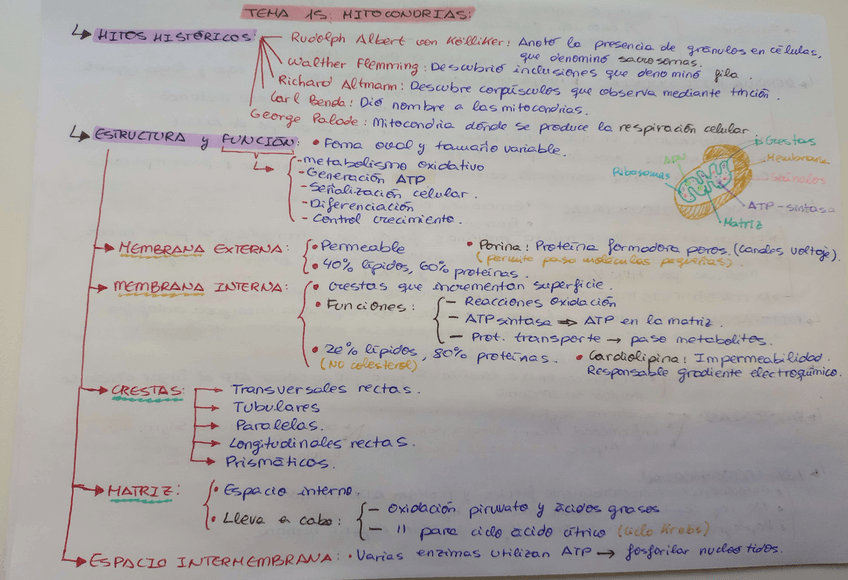 TEMA 15: MITOCONDRIAS:
HITOS HISTÓRICOS:
Rudolph Albert von Kölliker: Anotó la presencia de gránulos en células, que denominó sarcosomas.
Walther Flemming: Descubrió inclusiones que denominó fila.
Richard Altmann: Descubre corpúsculos que observa mediante tinción.
Carl Benda: Dió nombre a las mitocondrias.
George Palade: Mitocondria dónde se produce la respiración celular
ESTRUCTURA y FUNCIÓN: • Forma oval y tamaño variable.
- metabolismo oxidativo
- Generación ATP
- Señalización celular.
- Diferenciación
- Control crecimiento.
Crestas
Membrana
Gránulos
ADN
Ribosomas
ATP-sintasa
Matriz
MEMBRANA EXTERNA: • Permeable
• 40% lípidos, 60% proteínas.
• Porina: Proteína formadora poros. (canales voltaje).
(permite paso moléculas pequeñas)
MEMBRANA INTERNA: • Crestas que incrementan superficie.
• Funciones: - Reacciones Oxidación
- ATPsintasa ⇒ ATP en la matriz.
- Prot. transporte → paso metabolitos.
• 20% lípidos, 80% proteínas.
(NO colesterol)
• Cardiolipina: Impermeabilidad.
Responsable gradiente electroquímico.
CRESTAS: → Transversales rectas.
→ Tubulares
→ Paralelas.
→ Longitudinales rectas.
→ Prismáticos.
MATRIZ: • Espacio interno.
• Lleva a cabo: - Oxidación piruvato y ácidos grasos
- " para ciclo ácido cítrico (Ciclo Krebs)
ESPACIO INTERMEMBRANA: • Varias enzimas utilizan ATP → fosforilar nucleótidos.